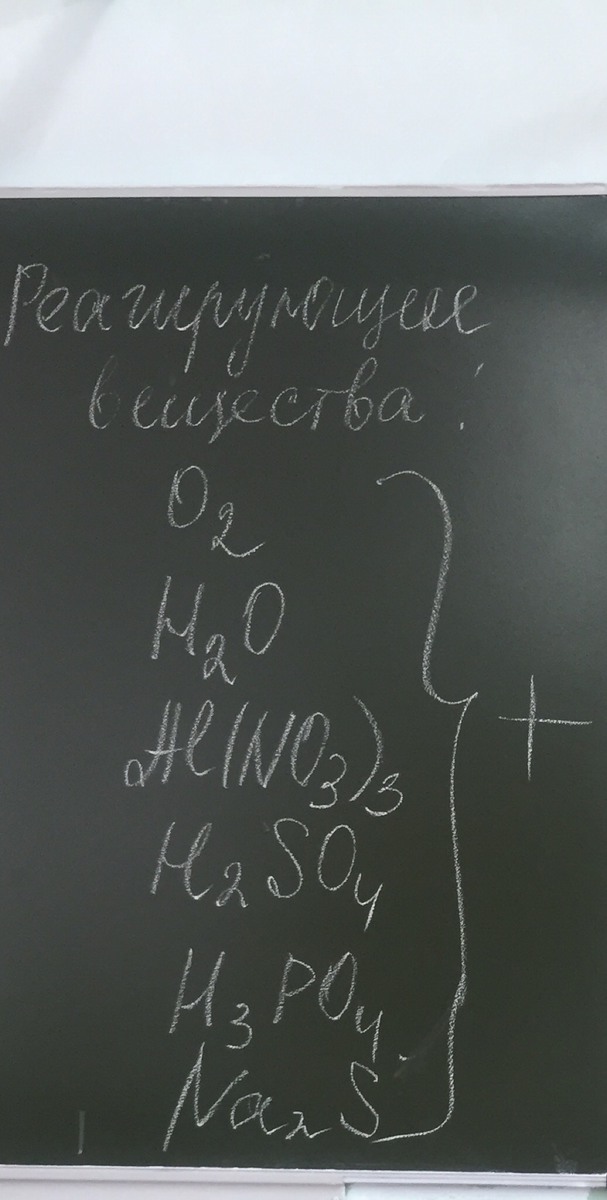 Реагирующие
вещества:
O₂
H₂O
Al(NO₃)₃
H₂SO₄
H₃PO₄
Na₂S
+